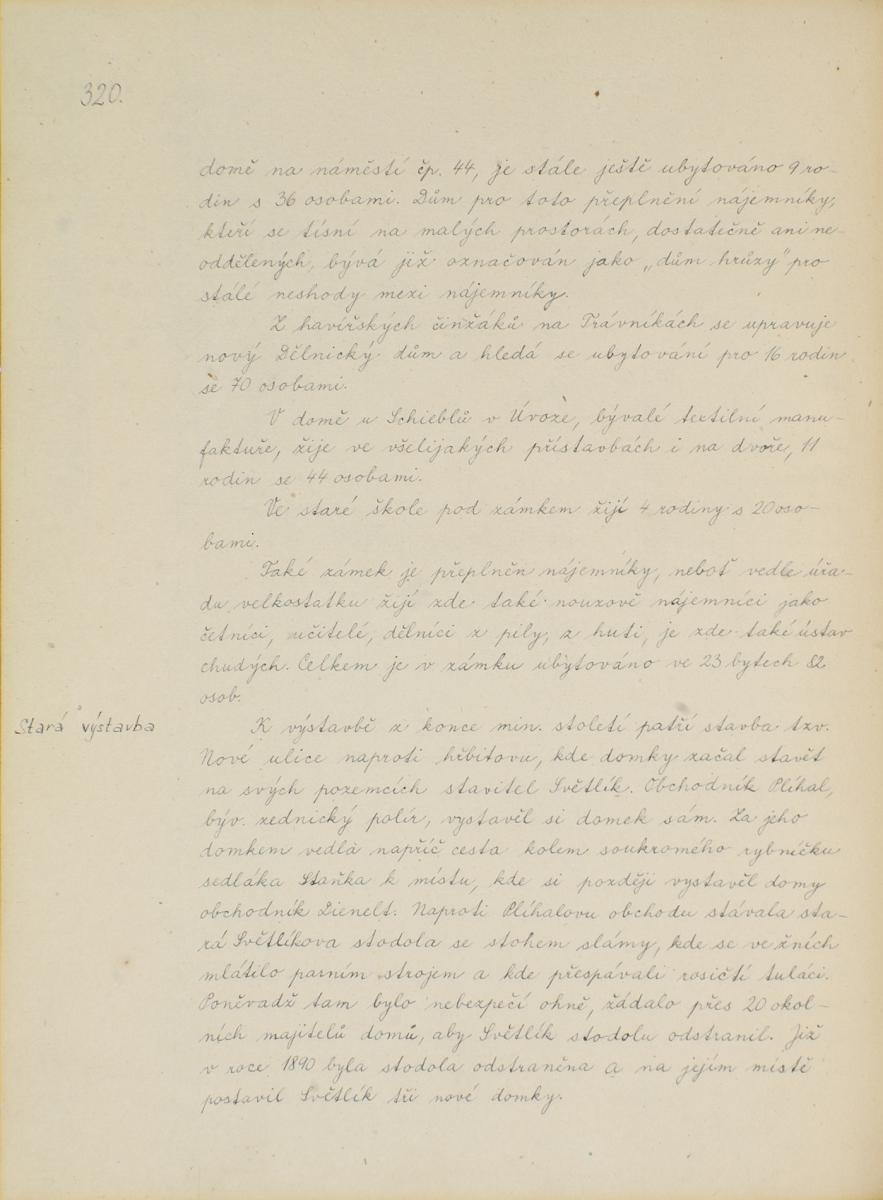 320.
domě na náměstí čp. 44, je stále ještě ubytováno 9 ro-
din s 36 osobami. Dům pro toto přeplnění nájemníky,
kteří se tísní na malých prostorách, dostatečně ani ne-
oddělených, bývá již označován jako „dům hrůzy" pro
stálé neshody mezi nájemníky.
Z havířských činžáků na Trávníkách se upravuje
nový Dělnický dům a hledá se ubytování pro 16 rodin
se 70 osobami.
V domě u Schieblů v Úvoze, bývalé textilní manu-
faktuře, žije ve všelijakých přístavbách i na dvoře, 11
rodin se 44 osobami.
Ve staré škole pod zámkem žijí 4 rodiny s 20 oso-
bami.
Také zámek je přeplněn nájemníky, neboť vedle úřa-
du velkostatku žijí zde také nouzově nájemníci jako
četníci, učitelé, dělníci z pily, z huti, je zde také ústav
chudých. Celkem je v zámku ubytováno ve 23 bytech 82
osob.
Stará výstavba
K výstavbě z konce min. století patří stavba tzv.
Nové ulice naproti hřbitovu, kde domky začal stavět
na svých pozemcích stavitel Světlík. Obchodník Plíhal,
býv. zednický polír, vystavěl si domek sám. Za jeho
domkem vedla napříč cesta kolem soukromého rybníčku
sedláka Staňka k místu, kde si později vystavěl domy
obchodník Dienelt. Naproti Plíhalovu obchodu stávala sta-
rá Světlíkova stodola se stohem slámy, kde se ve žních
mlátilo parním strojem a kde přespávali rosičtí tuláci.
Poněvadž tam bylo nebezpečí ohně, žádalo přes 20 okol-
ních majitelů domů, aby Světlík stodolu odstranil. Již
v roce 1890 byla stodola odstraněna a na jejím místě
postavil Světlík tři nové domky.